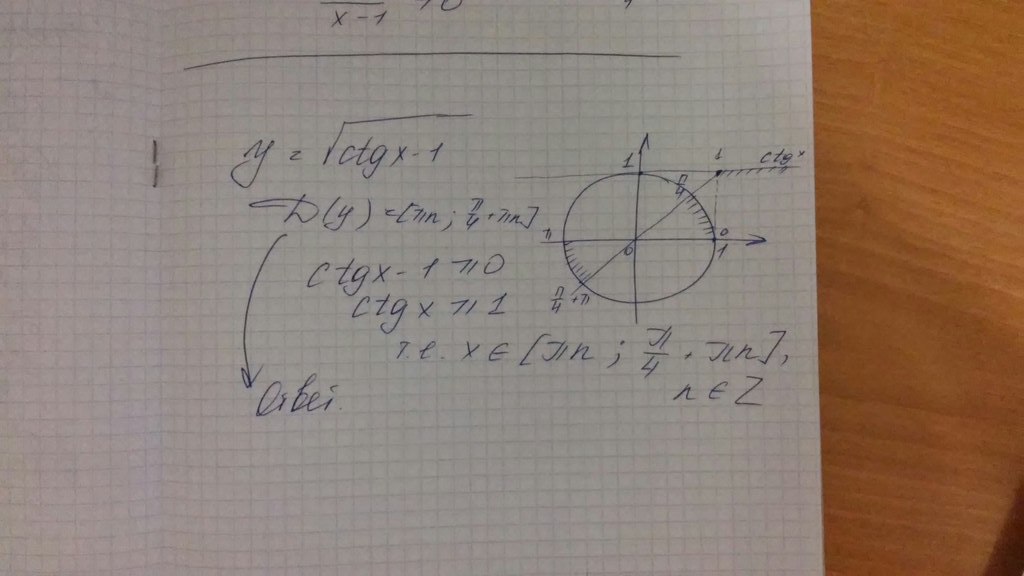 x-1
y = √ctgx-1
D(y) = [πn; π/4+πn]
ctgx-1 ≥ 0
ctgx ≥ 1
т.е. x ∈ [πn; π/4 + πn],
n ∈ Z
Ответ.
1
1
ctgx
π/4
π
0
0
1
π/4+π